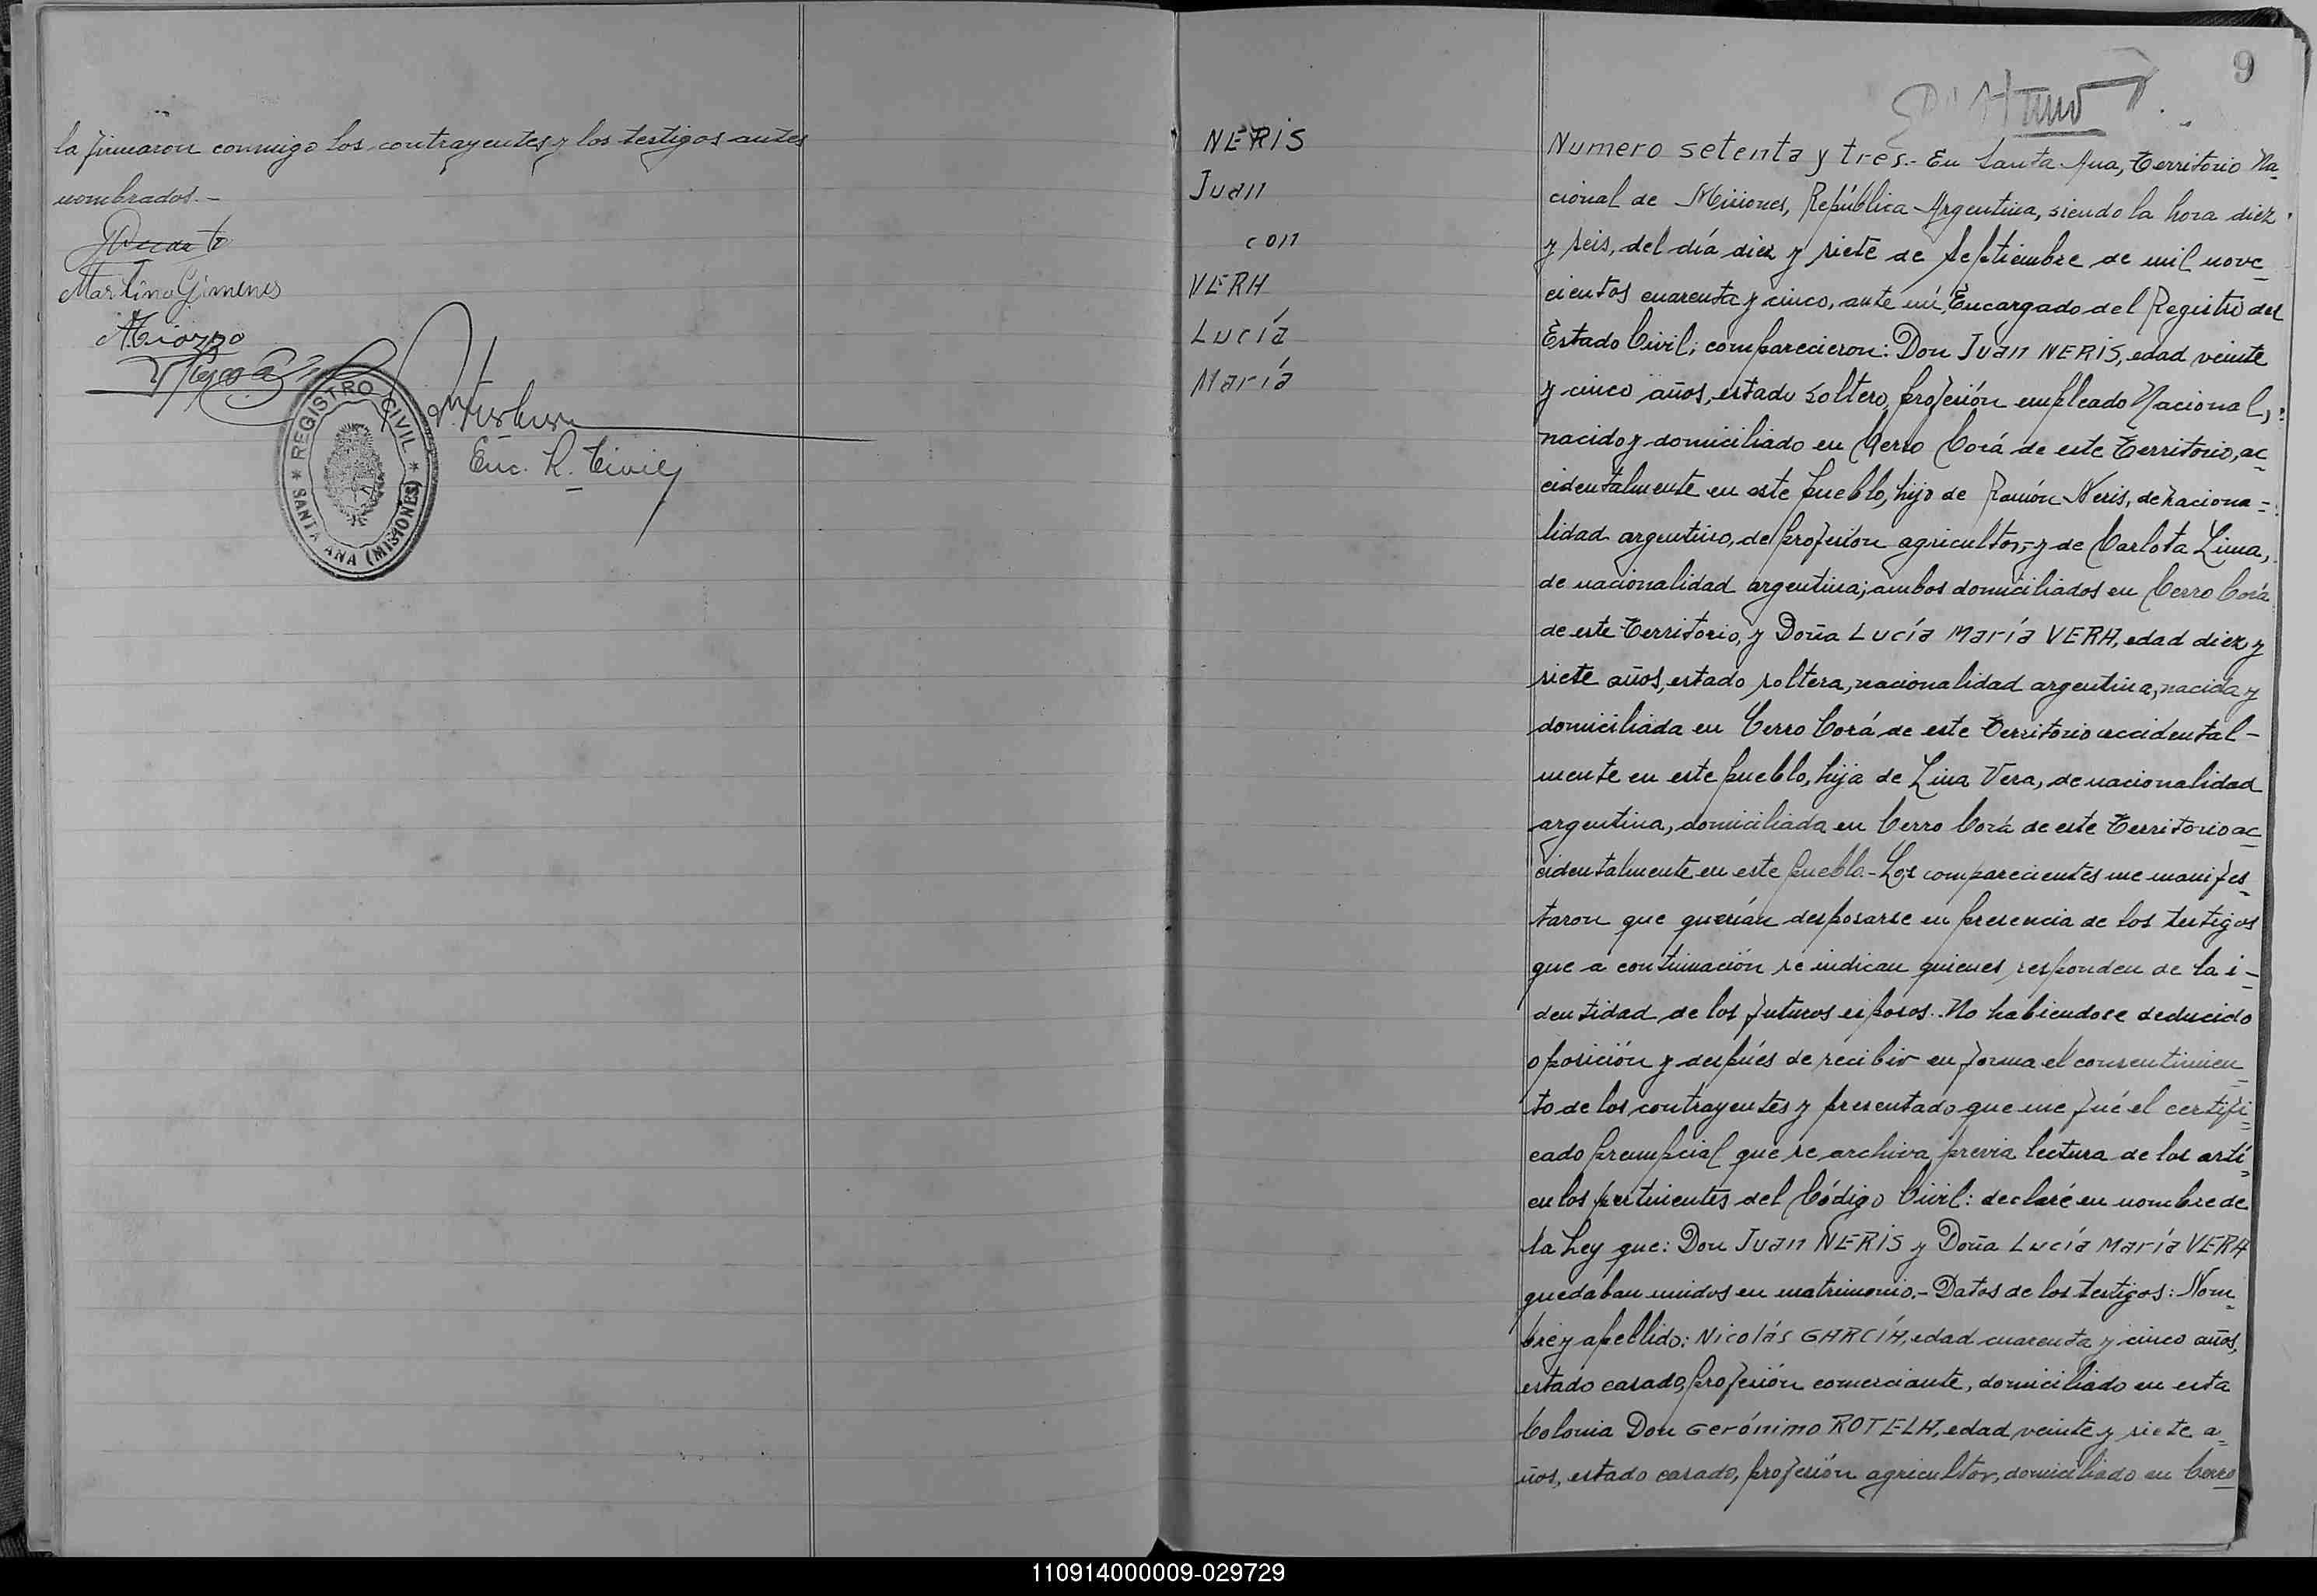 la firmaron conmigo los contrayentes y los testigos antes
nombrados.-
Martina Gimenes
Enc. R. Civil
* REGISTRO CIVIL * SANTA ANA (MISIONES)
9
NERIS
Juan
con
VERA
Lucía
María
Numero setenta y tres.- En Santa Ana, Territorio Na-
cional de Misiones, República Argentina, siendo la hora diez
y seis, del día diez y siete de septiembre de mil nove-
cientos cuarenta y cinco, ante mí, Encargado del Registro del
Estado Civil; comparecieron: Don Juan NERIS, edad veinte
y cinco años, estado soltero, profesión empleado Nacional,
nacido y domiciliado en Cerro Corá de este Territorio, ac-
cidentalmente en este pueblo, hijo de Ramón Neris, de naciona=
lidad argentino, de profesión agricultor,- y de Carlota Lima,
de nacionalidad argentina; ambos domiciliados en Cerro Corá
de este Territorio, y Doña Lucía María VERA, edad diez y
siete años, estado soltera, nacionalidad argentina, nacida y
domiciliada en Cerro Corá de este Territorio accidental-
mente en este pueblo, hija de Lina Vera, de nacionalidad
argentina, domiciliada en Cerro Corá de este Territorio ac-
cidentalmente en este pueblo.- Los comparecientes me manifes-
taron que querían desposarse en presencia de los testigos
que a continuación se indican quienes responden de la i-
dentidad de los futuros esposos. No habiendose deducido
oposición y después de recibir en forma el consentimien-
to de los contrayentes y presentado que me fué el certifi=
cado prenupcial que se archiva, previa lectura de los artí=
culos pertinentes del Código Civil: declaré en nombre de
la Ley que: Don Juan NERIS y Doña Lucía María VERA
quedaban unidos en matrimonio.- Datos de los testigos: Nom=
bre y apellido: Nicolás GARCÍA, edad cuarenta y cinco años,
estado casado, profesión comerciante, domiciliado en esta
Colonia Don Gerónimo ROTELA, edad veinte y siete a=
ños, estado casado, profesión agricultor, domiciliado en Cerro
110914000009-029729